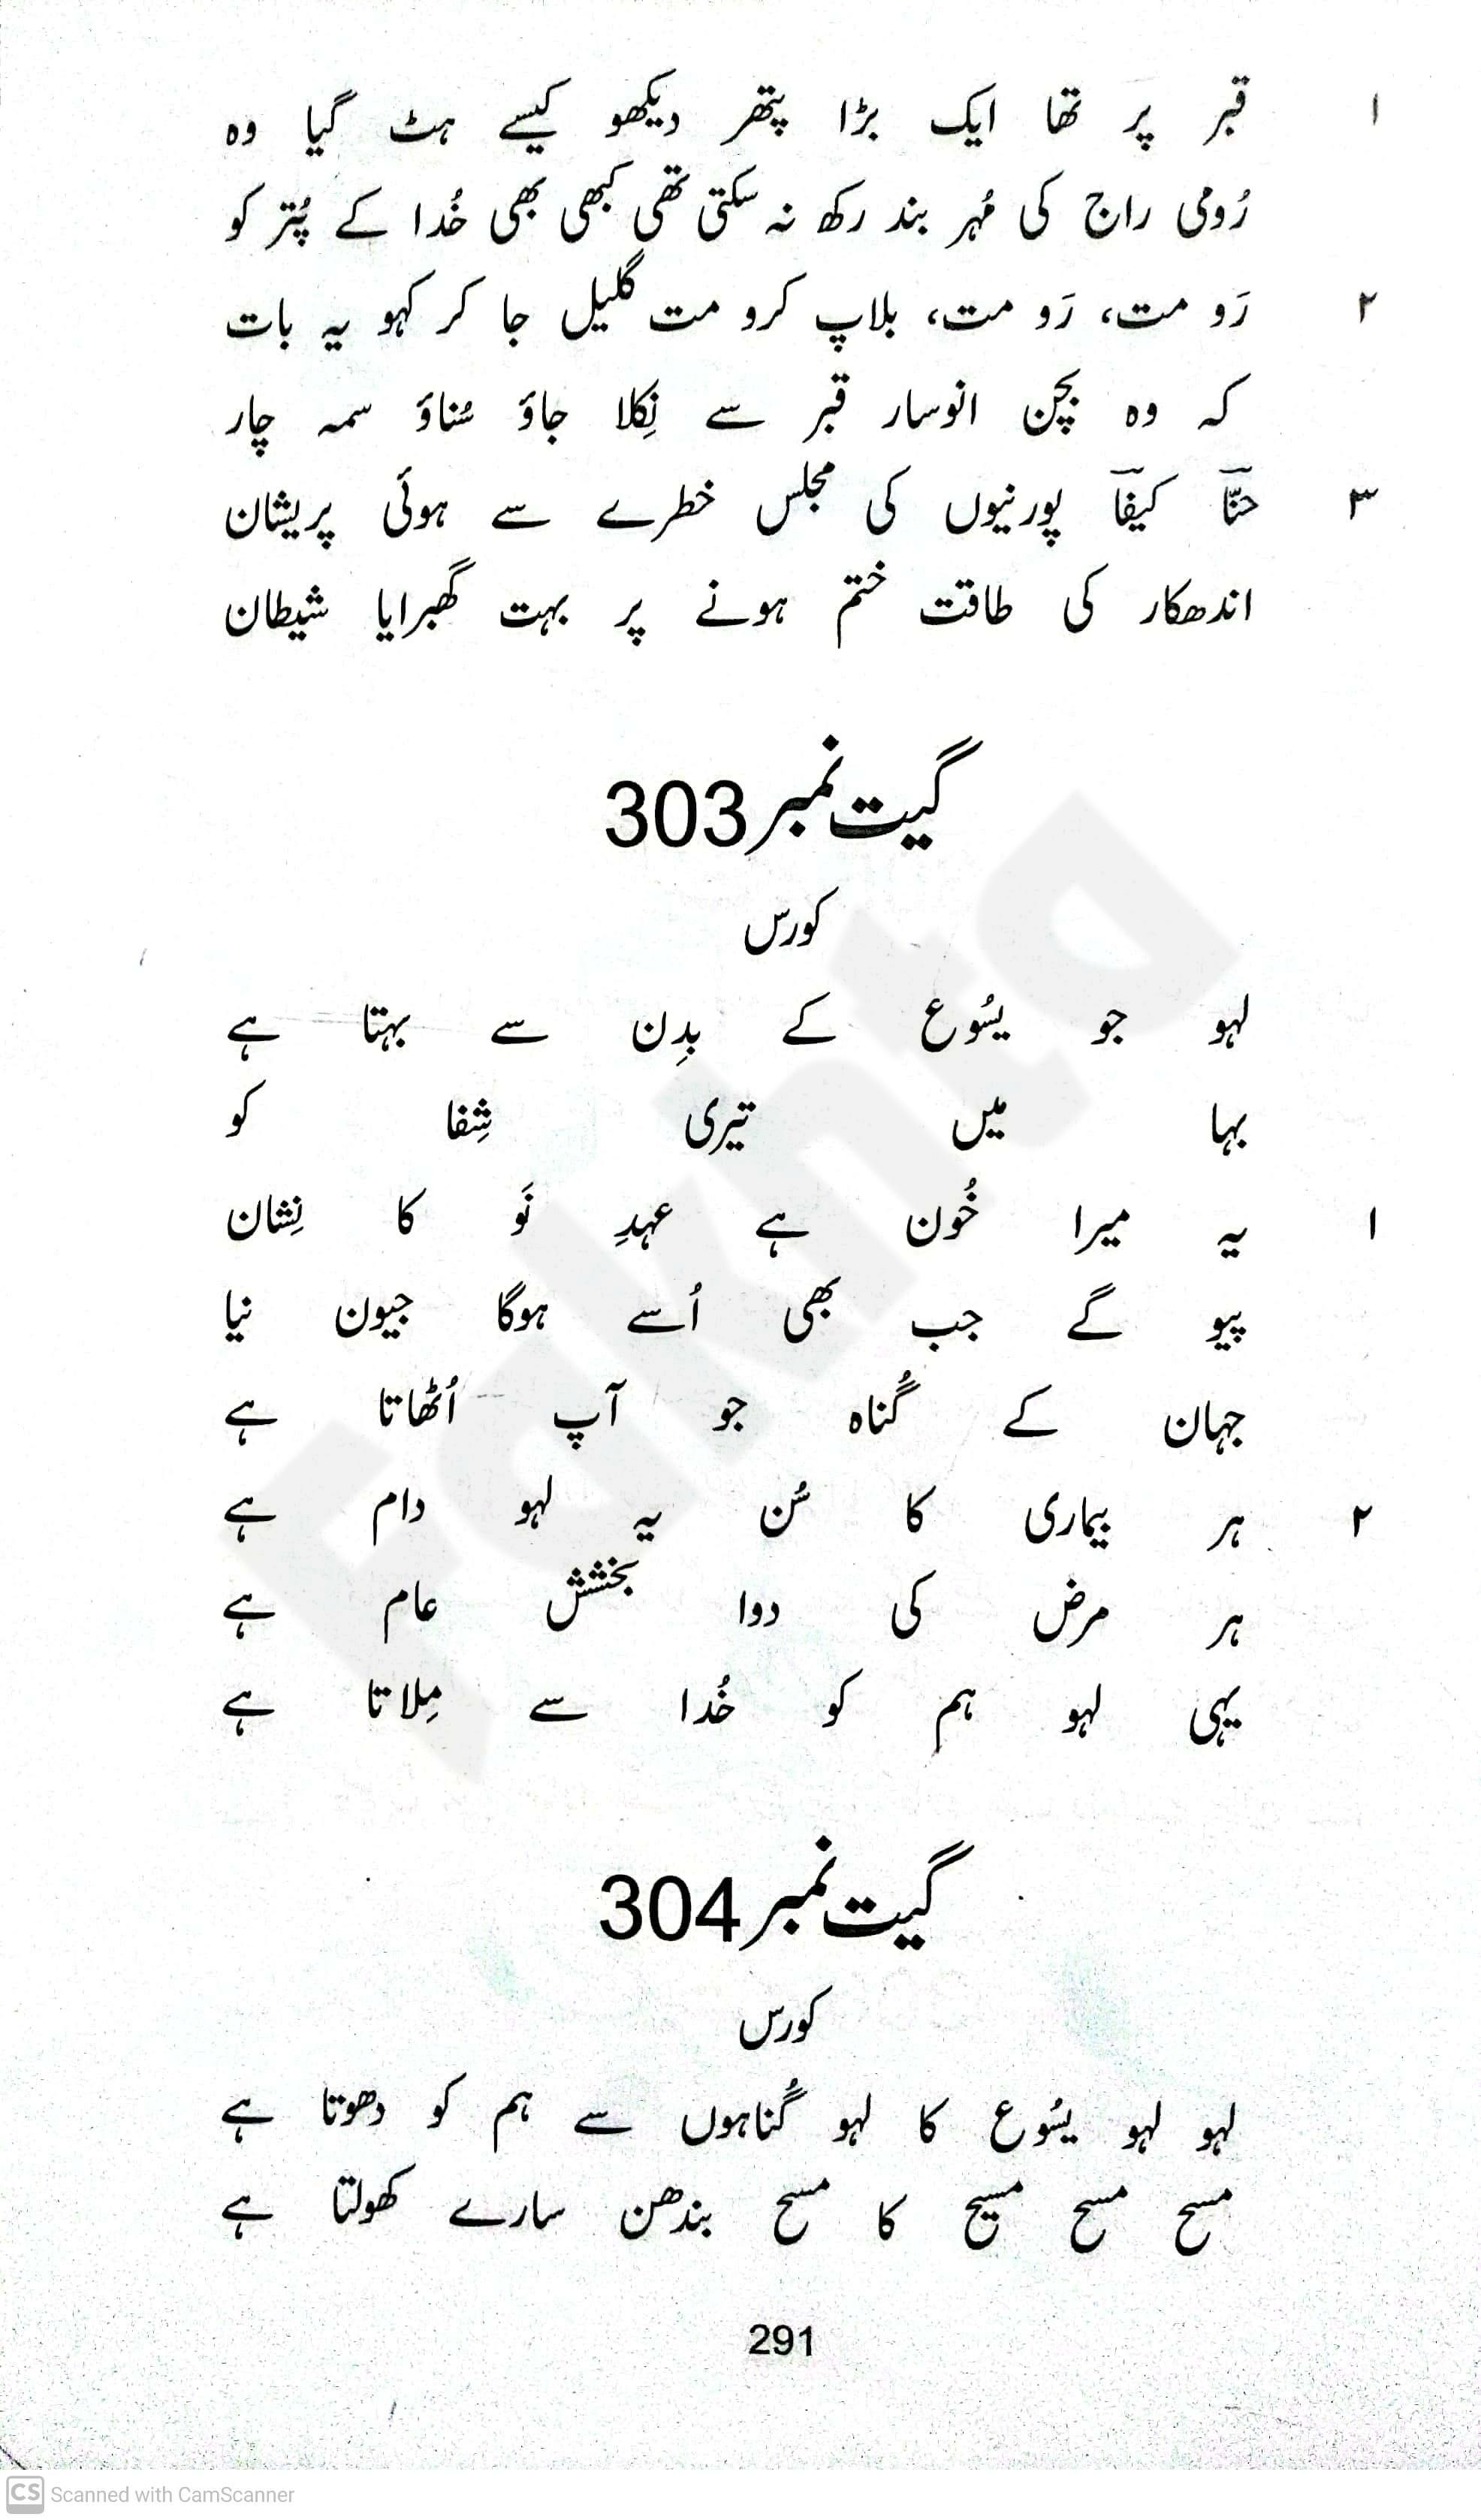 ۱ قبر پر تھا ایک بڑا پتھر دیکھو کیسے ہٹ گیا وہ
رُومی راج کی مُہر بند رکھ نہ سکتی تھی کبھی بھی خُدا کے پُتر کو
۲ رَو مت، رَو مت، بلاپ کرو مت گلیل جا کر کہو یہ بات
کہ وہ بچن انوسار قبر سے نِکلا جاؤ سُناؤ سمہ چار
۳ حنّآ کیفآ پورنیوں کی مجلس خطرے سے ہوئی پریشان
اندھکار کی طاقت ختم ہونے پر بہت گھبرایا شیطان
گیت نمبر 303
کورس
لہو جو یسُوع کے بدِن سے بہتا ہے
بہا میں تیری شِفا کو
۱ یہ میرا خُون ہے عہدِ نَو کا نِشان
پیو گے جب بھی اُسے ہوگا جیون نیا
جہان کے گُناہ جو آپ اُٹھاتا ہے
۲ ہر بیماری کا سُن یہ لہو دام ہے
ہر مرض کی دوا بخشش عام ہے
یہی لہو ہم کو خُدا سے مِلاتا ہے
گیت نمبر 304
کورس
لہو لہو یسُوع کا لہو گُناہوں سے ہم کو دھوتا ہے
مسح مسح مسیح کا مسح بندھن سارے کھولتا ہے
291
Fakhta
CS Scanned with CamScanner